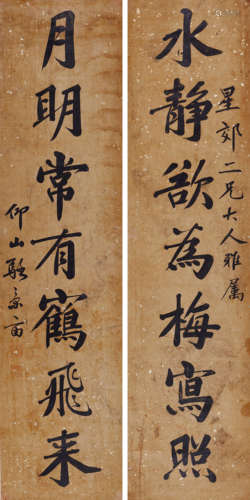 水靜欲為梅寫照
星郊二兄大人雅屬
月明常有鶴飛来
仰山